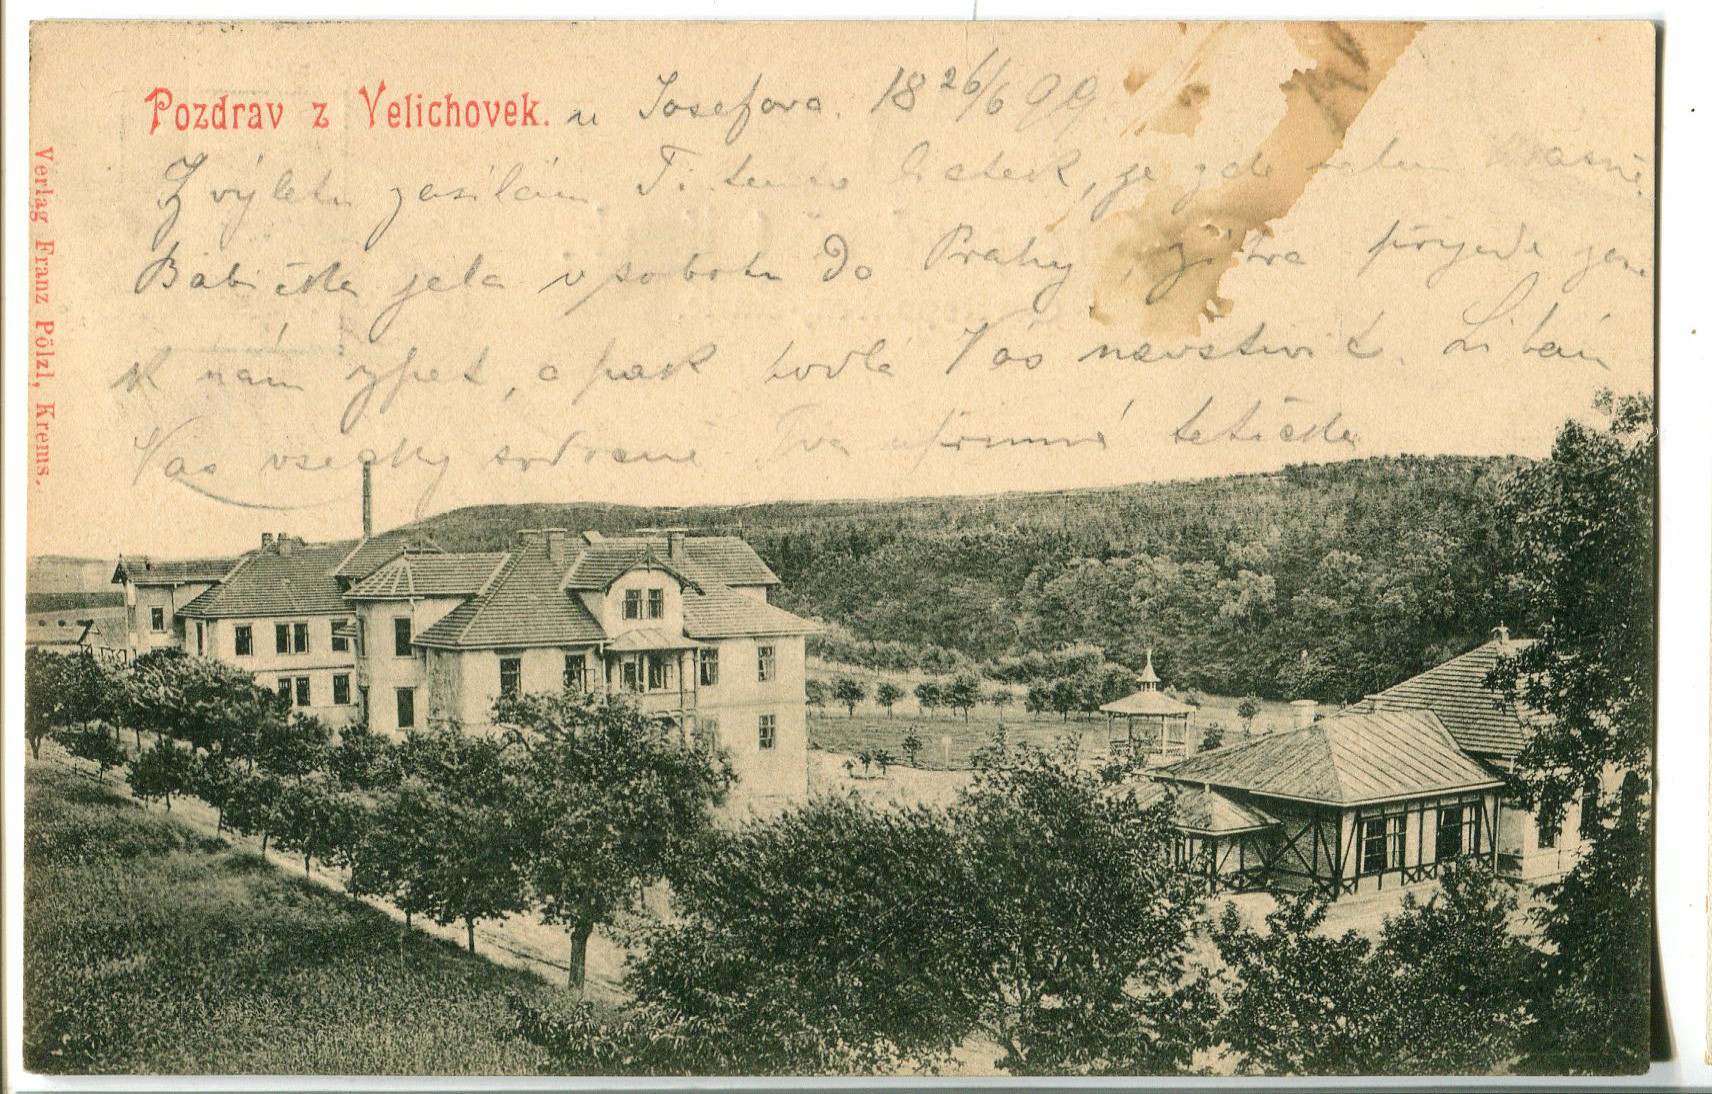 Pozdrav z Velichovek. u Josefova. 18 26/6 99
Z výletu zasílám Ti tento lístek, je zde velmi krásně.
Babička jela v sobotu do Prahy, zítra přijede zase
k nám zpět, a pak hodlá Vás navštívit. Líbám
Vás všecky srdečně Tvá upřímná tetička
Verlag Franz Pölzl, Krems.